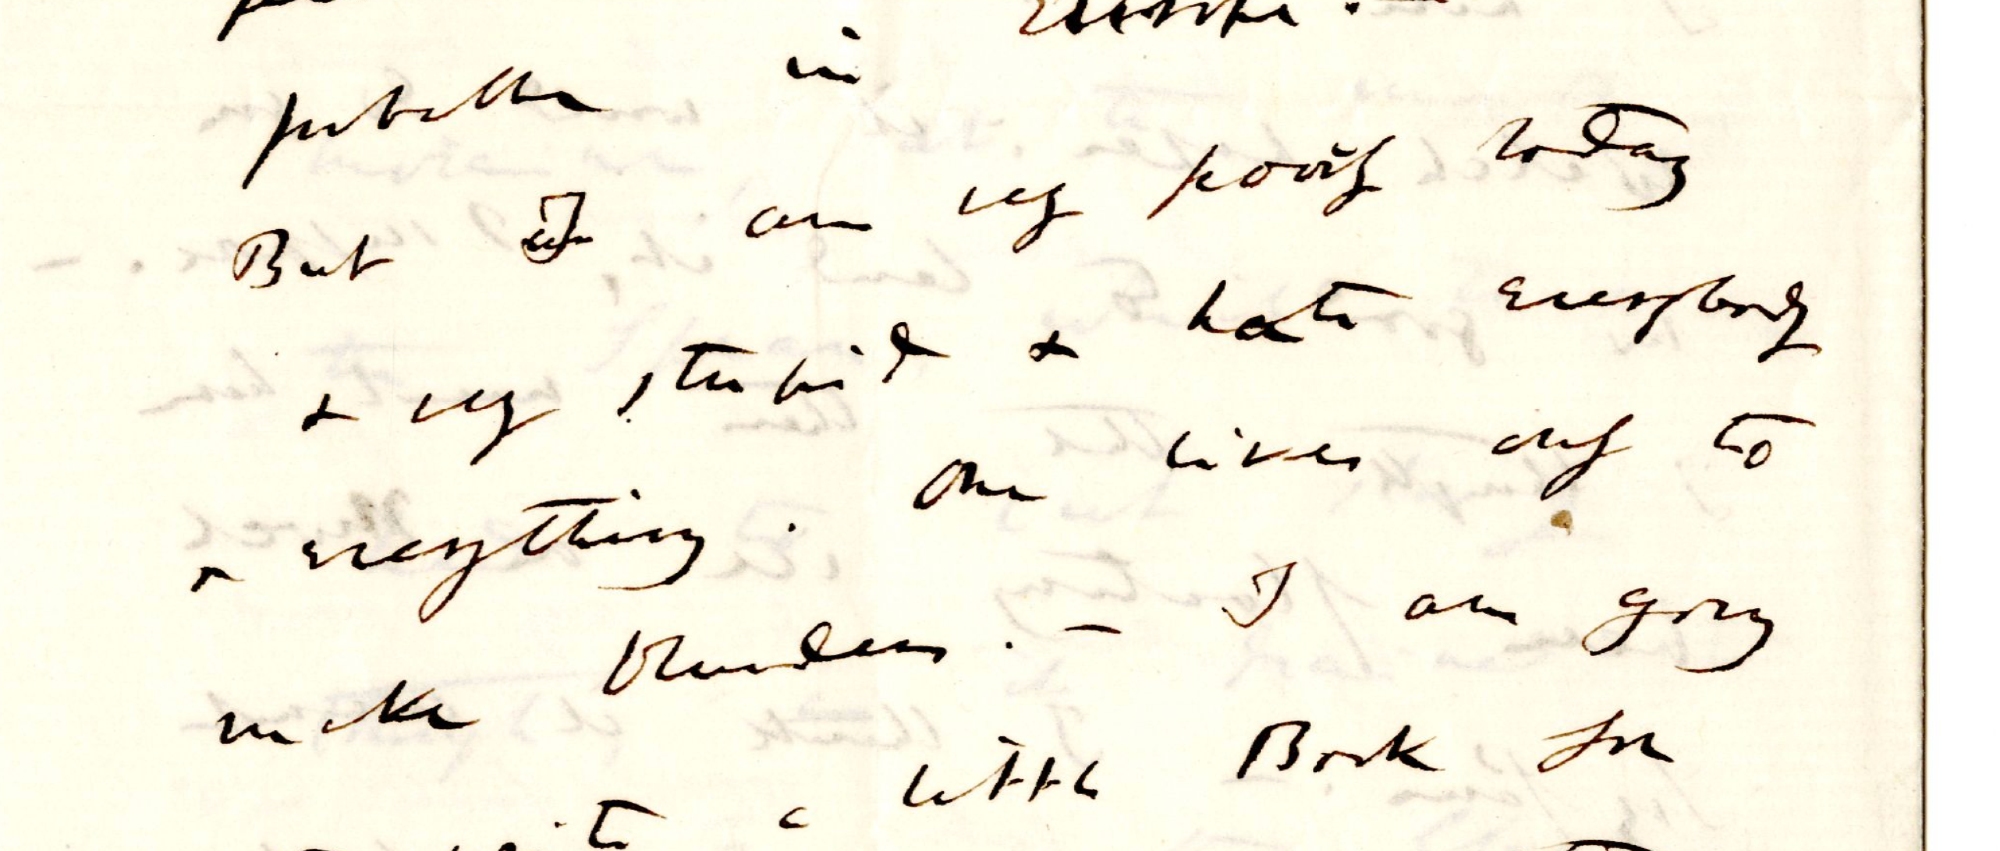 in
But I am very poorly today
& very stupid & hate everybody
& everything. One lives only to
make blunders.— I am going
write a little Book for